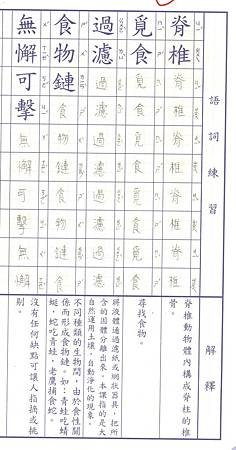 語詞練習
解釋
脊椎脊椎脊椎脊椎脊椎
脊椎動物體內構成脊柱的椎
骨。
覓食覓食覓食覓食覓食
尋找食物。
過濾過濾過濾過濾過濾
將液體通過濾紙或網狀器具，把所
含的固體分離出來。本課指的是大
自然運用土壤，自動淨化的現象。
食物鏈食物鏈食物鏈食
不同種類的生物間，由於食性關
係而形成食物鏈。如：青蛙吃蜻
蜓，蛇吃青蛙，老鷹捕食蛇。
無懈可擊無懈可擊無懈
沒有任何缺點可讓人指摘或挑
剔。